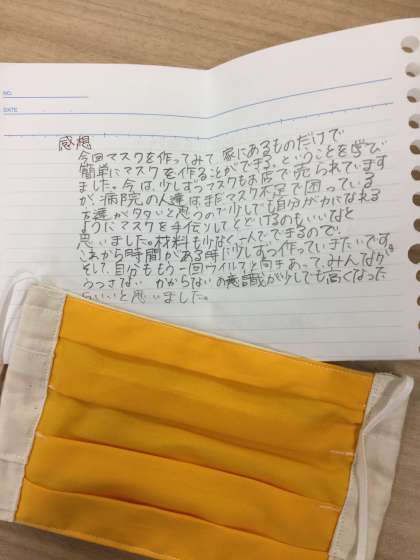 NO.
DATE
感想
今回マスクを作ってみて、家にあるものだけで
簡単にマスクを作ることができる。ということを学び
ました。今は、少しずつマスクもお店で売られています
が、病院の人達はまだマスク不足で困っている
と思うので少しでも自分が力になれる
ようにマスクを手伝いしてとどけるのもいいなと
思いました。材料も少なくてできるので、
これから時間がある時に少しずつ作っていきたいです。
そして、自分ももう一回ウイルスと向きあって、みんなが
うつさない かからない の意識が少しでも高くなった
らいいと思いました。